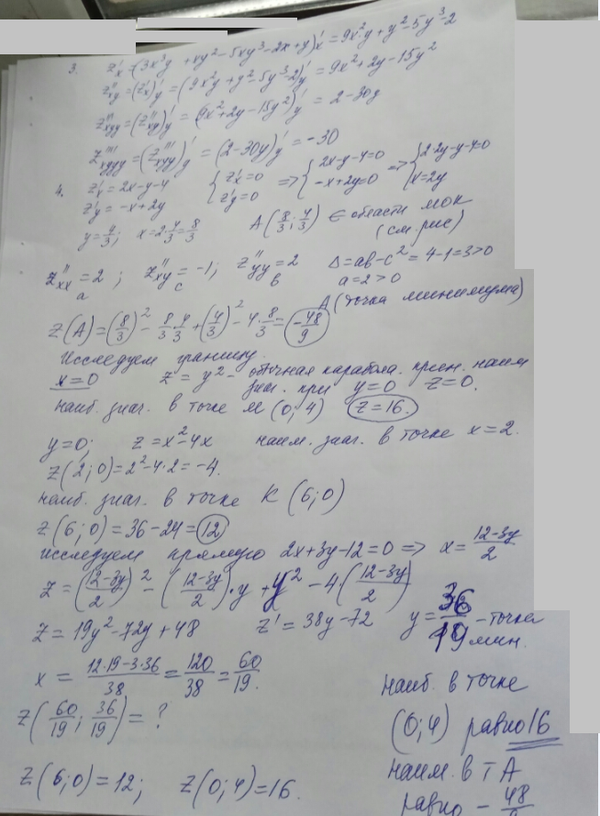 3. z'x = (3x³y + xy² - 5xy³ - 2x + y)'x = 9x²y + y² - 5y³ - 2
z''xy = (z'x)'y = (9x²y + y² - 5y³ - 2)'y = 9x² + 2y - 15y²
z'''xyy = (z''xy)'y = (9x² + 2y - 15y²)'y = 2 - 30y
z''''xyyy = (z'''xyy)'y = (2 - 30y)'y = -30
4. z'x = 2x - y - 4 { z'x = 0 => { 2x - y - 4 = 0 => { 2·2y - y - 4 = 0
z'y = -x + 2y z'y = 0 -x + 2y = 0 x = 2y
y = 4/3; x = 2·4/3 = 8/3 A(8/3; 4/3) ∈ области МОК
(см. рис)
z''xx = 2; z''xy = -1; z''yy = 2 Δ = ab - c² = 4 - 1 = 3 > 0
a c b a = 2 > 0
A (точка минимума)
z(A) = (8/3)² - 8/3·4/3 + (4/3)² - 4·8/3 = -48/9
Исследуем границу.
x = 0 z = y² - обычная парабола. прин. наим
знач. при y = 0 z = 0.
наиб. знач. в точке м (0; 4) z = 16.
y = 0; z = x² - 4x наим. знач. в точке x = 2.
z(2; 0) = 2² - 4·2 = -4.
наиб. знач. в точке K (6; 0)
z(6; 0) = 36 - 24 = 12
исследуем прямую 2x + 3y - 12 = 0 => x = (12-3y)/2
z = ((12-3y)/2)² - ((12-3y)/2)·y + y² - 4((12-3y)/2)
z = 19y² - 72y + 48 z' = 38y - 72 y = 36/19 - точка
мин.
x = (12·19 - 3·36)/38 = 120/38 = 60/19.
z(60/19; 36/19) = ?
z(6; 0) = 12; z(0; 4) = 16.
наиб. в точке
(0; 4) равно 16
наим. в т A
равно - 48/9